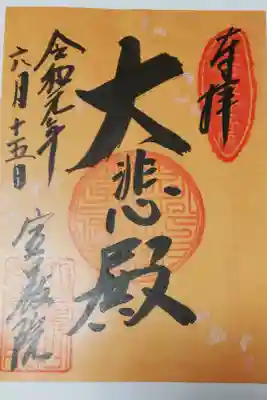 奉拝
大悲殿
令和元年
六月十五日
宝厳院